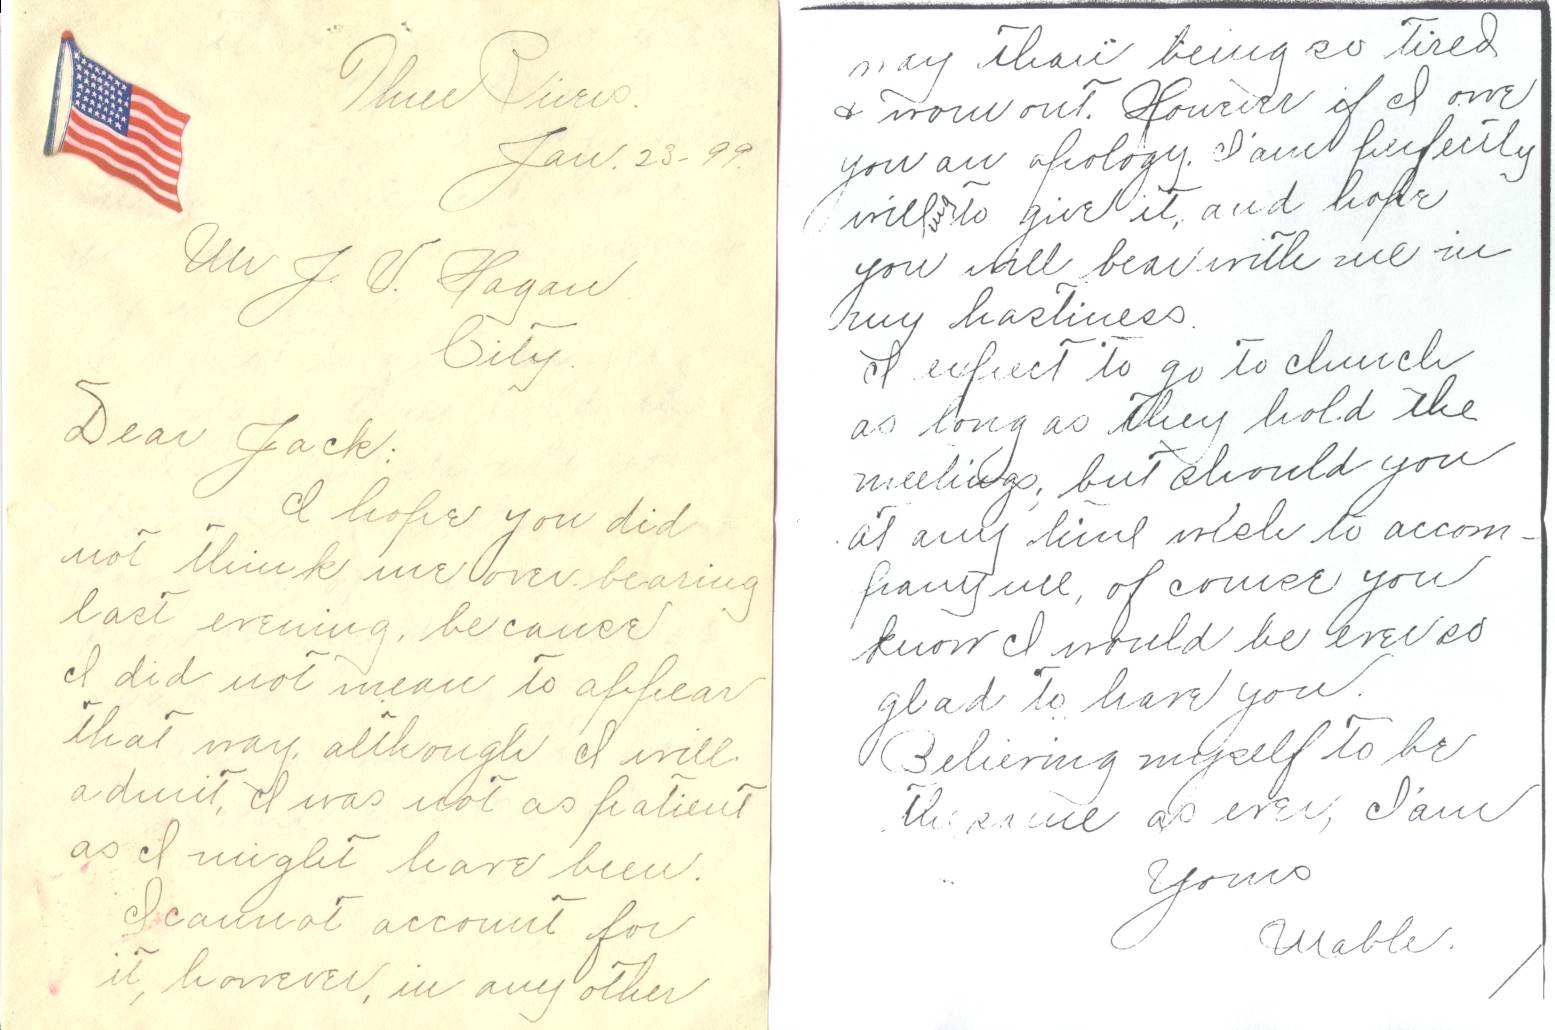 Three Rivers.
Jan. 23-99.
Mr J. V. Hagan
City.
Dear Jack:
I hope you did
not think me over-bearing
last evening, because
I did not mean to appear
that way, although I will
admit, I was not as patient
as I might have been.
I cannot account for
it, however, in any other
way than being so tired
& worn out. However if I owe
you an apology. I'am perfectly
will to give it, and hope
you will bear with me in
my hastiness.
I expect to go to church
as long as they hold the
meetings, but should you
at any time wish to accom-
pany me, of course you
know I would be ever so
glad to have you.
Believing myself to be
the same as ever, I'am
Yours
Mable.